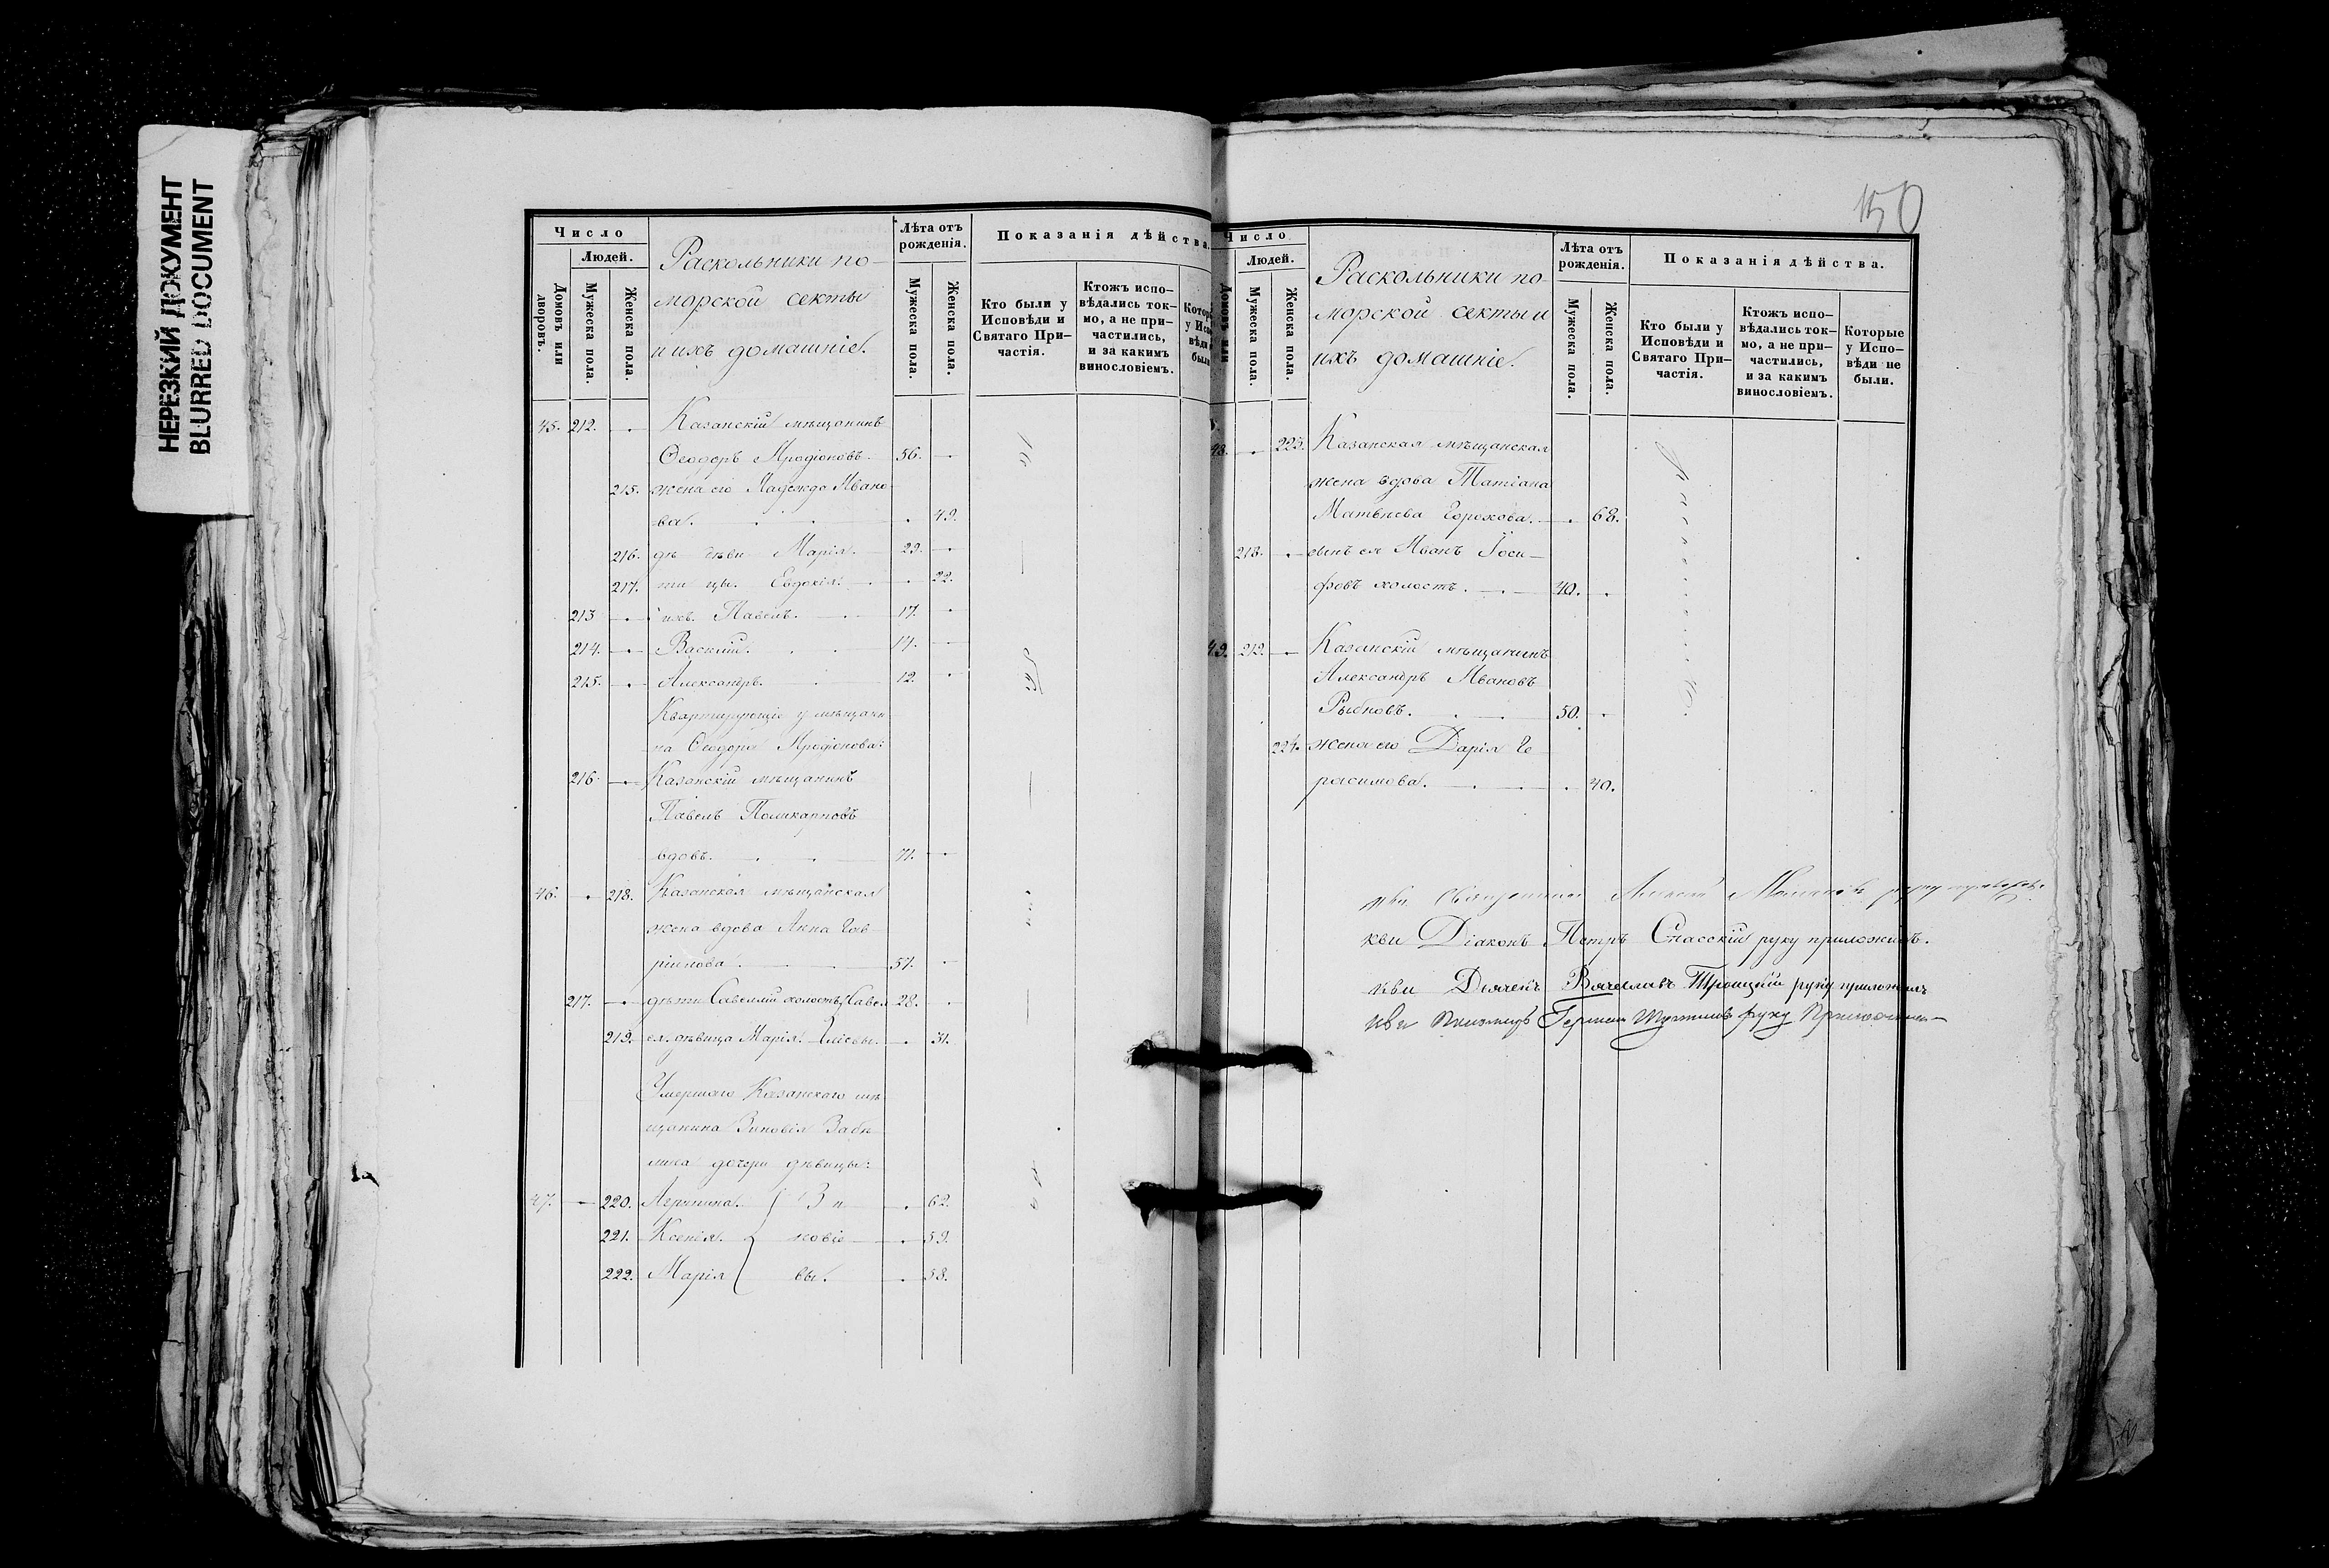 НЕРЕЗКИЙ ДОКУМЕНТ
BLURRED DOCUMENT
Число
Людей.
Домовъ или дворовъ.
Мужеска пола.
Женска пола.
Раскольники по-
морской секты
и ихъ домашніе.
Лѣта отъ
рожденія.
Мужеска пола.
Женска пола.
Показанія дѣйства.
Кто были у
Исповѣди и
Святаго При-
частія.
Ктожъ испо-
вѣдались ток-
мо, а не при-
частились,
и за какимъ
винословіемъ.
45. 212. Казанскій мѣщанинъ
Ѳеодоръ Иродіоновъ. 56.
215. жена его Надежда Ивано
ва. 49.
216. дѣ дѣви Марія. 29.
217. ти цы. Евдокія. 22.
213 ихъ Павелъ. 17.
214. Василій. 14.
215. Александръ. 12.
Квартирующіе у мѣщани
на Ѳеодора Иродіонова:
216 Казанскій мѣщанинъ
Павелъ Поликарповъ
вдовъ. 71.
46. 218. Казанская мѣщанская
жена вдова Анна Гав
рилова 57.
217. дѣти Савелій холостъ 28.
219. ея. дѣвица Марія. 31.
Умершаго Казанскаго мѣ
щанина Зиновія
дочери дѣвицы:
47. 220. Агрипина. Зи 62.
221. Ксенія. новіе 59.
222. Марія вы. 58.
150
Число
Людей.
Домовъ или
Мужеска пола.
Женска пола.
Раскольники по
морской секты и
ихъ домашніе.
Лѣта отъ
рожденія.
Мужеска пола.
Женска пола.
Показанія дѣйства.
Кто были у
Исповѣди и
Святаго При-
частія.
Ктожъ испо-
вѣдались ток-
мо, а не при-
частились,
и за какимъ
винословіемъ.
Которые
у Испо-
вѣди не
были.
48. 223. Казанская мѣщанская
жена вдова Татіана
Матвѣева Горохова. 68.
218. сынъ ея Иванъ Іоси-
фовъ холостъ. 40.
49. 219. Казанскій мѣщанинъ
Александръ Ивановъ
Рыбновъ. 50.
224. жена его Дарія Ге
расимова. 40.
Священникъ руку приложилъ.
Діаконъ Петръ Спасскій руку приложилъ.
Дьячекъ Вячеславъ Троицкій руку приложилъ
руку приложилъ